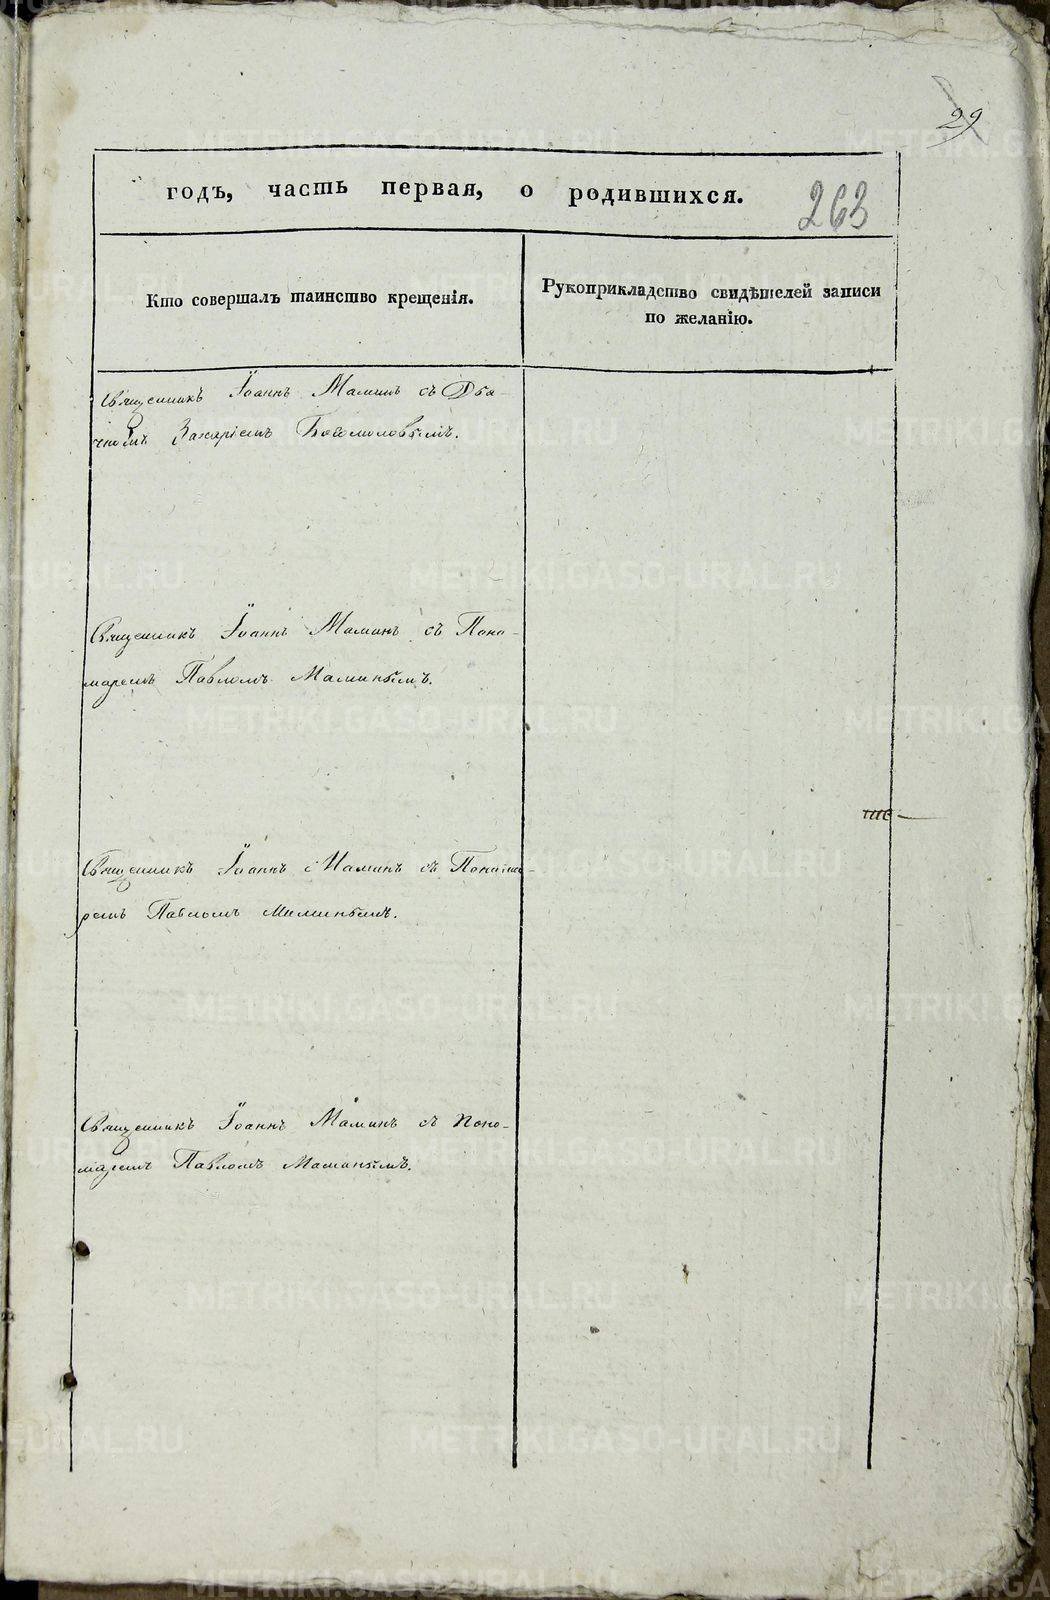 29
годъ, часть первая, о родившихся.
263
Кто совершалъ таинство крещенія.
Рукоприкладство свидѣтелей записи
по желанію.
Священникъ Іоаннъ Маминъ съ Дья-
чкомъ Захаріемъ Богомоловымъ.
Священникъ Іоаннъ Маминъ съ Поно-
маремъ Павломъ Маминымъ.
Священникъ Іоаннъ Маминъ съ Понома-
ремъ Павломъ Маминымъ.
Священникъ Іоаннъ Маминъ съ Поно-
маремъ Павломъ Маминымъ.
METRIKI.GASO-URAL.RU